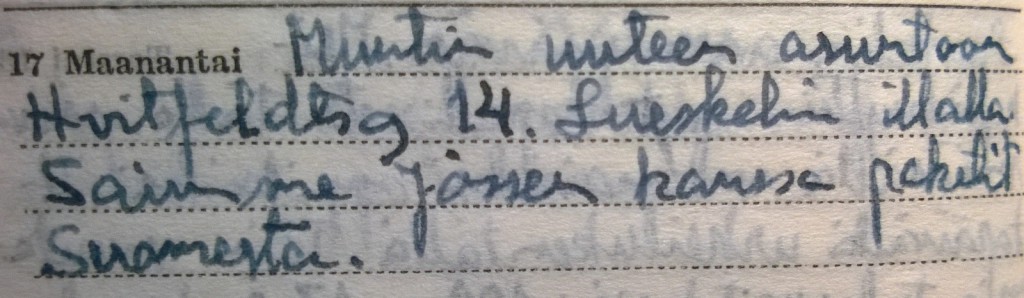 17 Maanantai Muutin uuteen asuntoon
Hvitfeldtsg 14. Lueskelin illalla.
Saimme Jässen kanssa paketit
Suomesta.